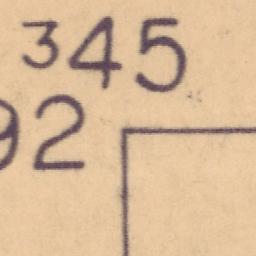 345
92